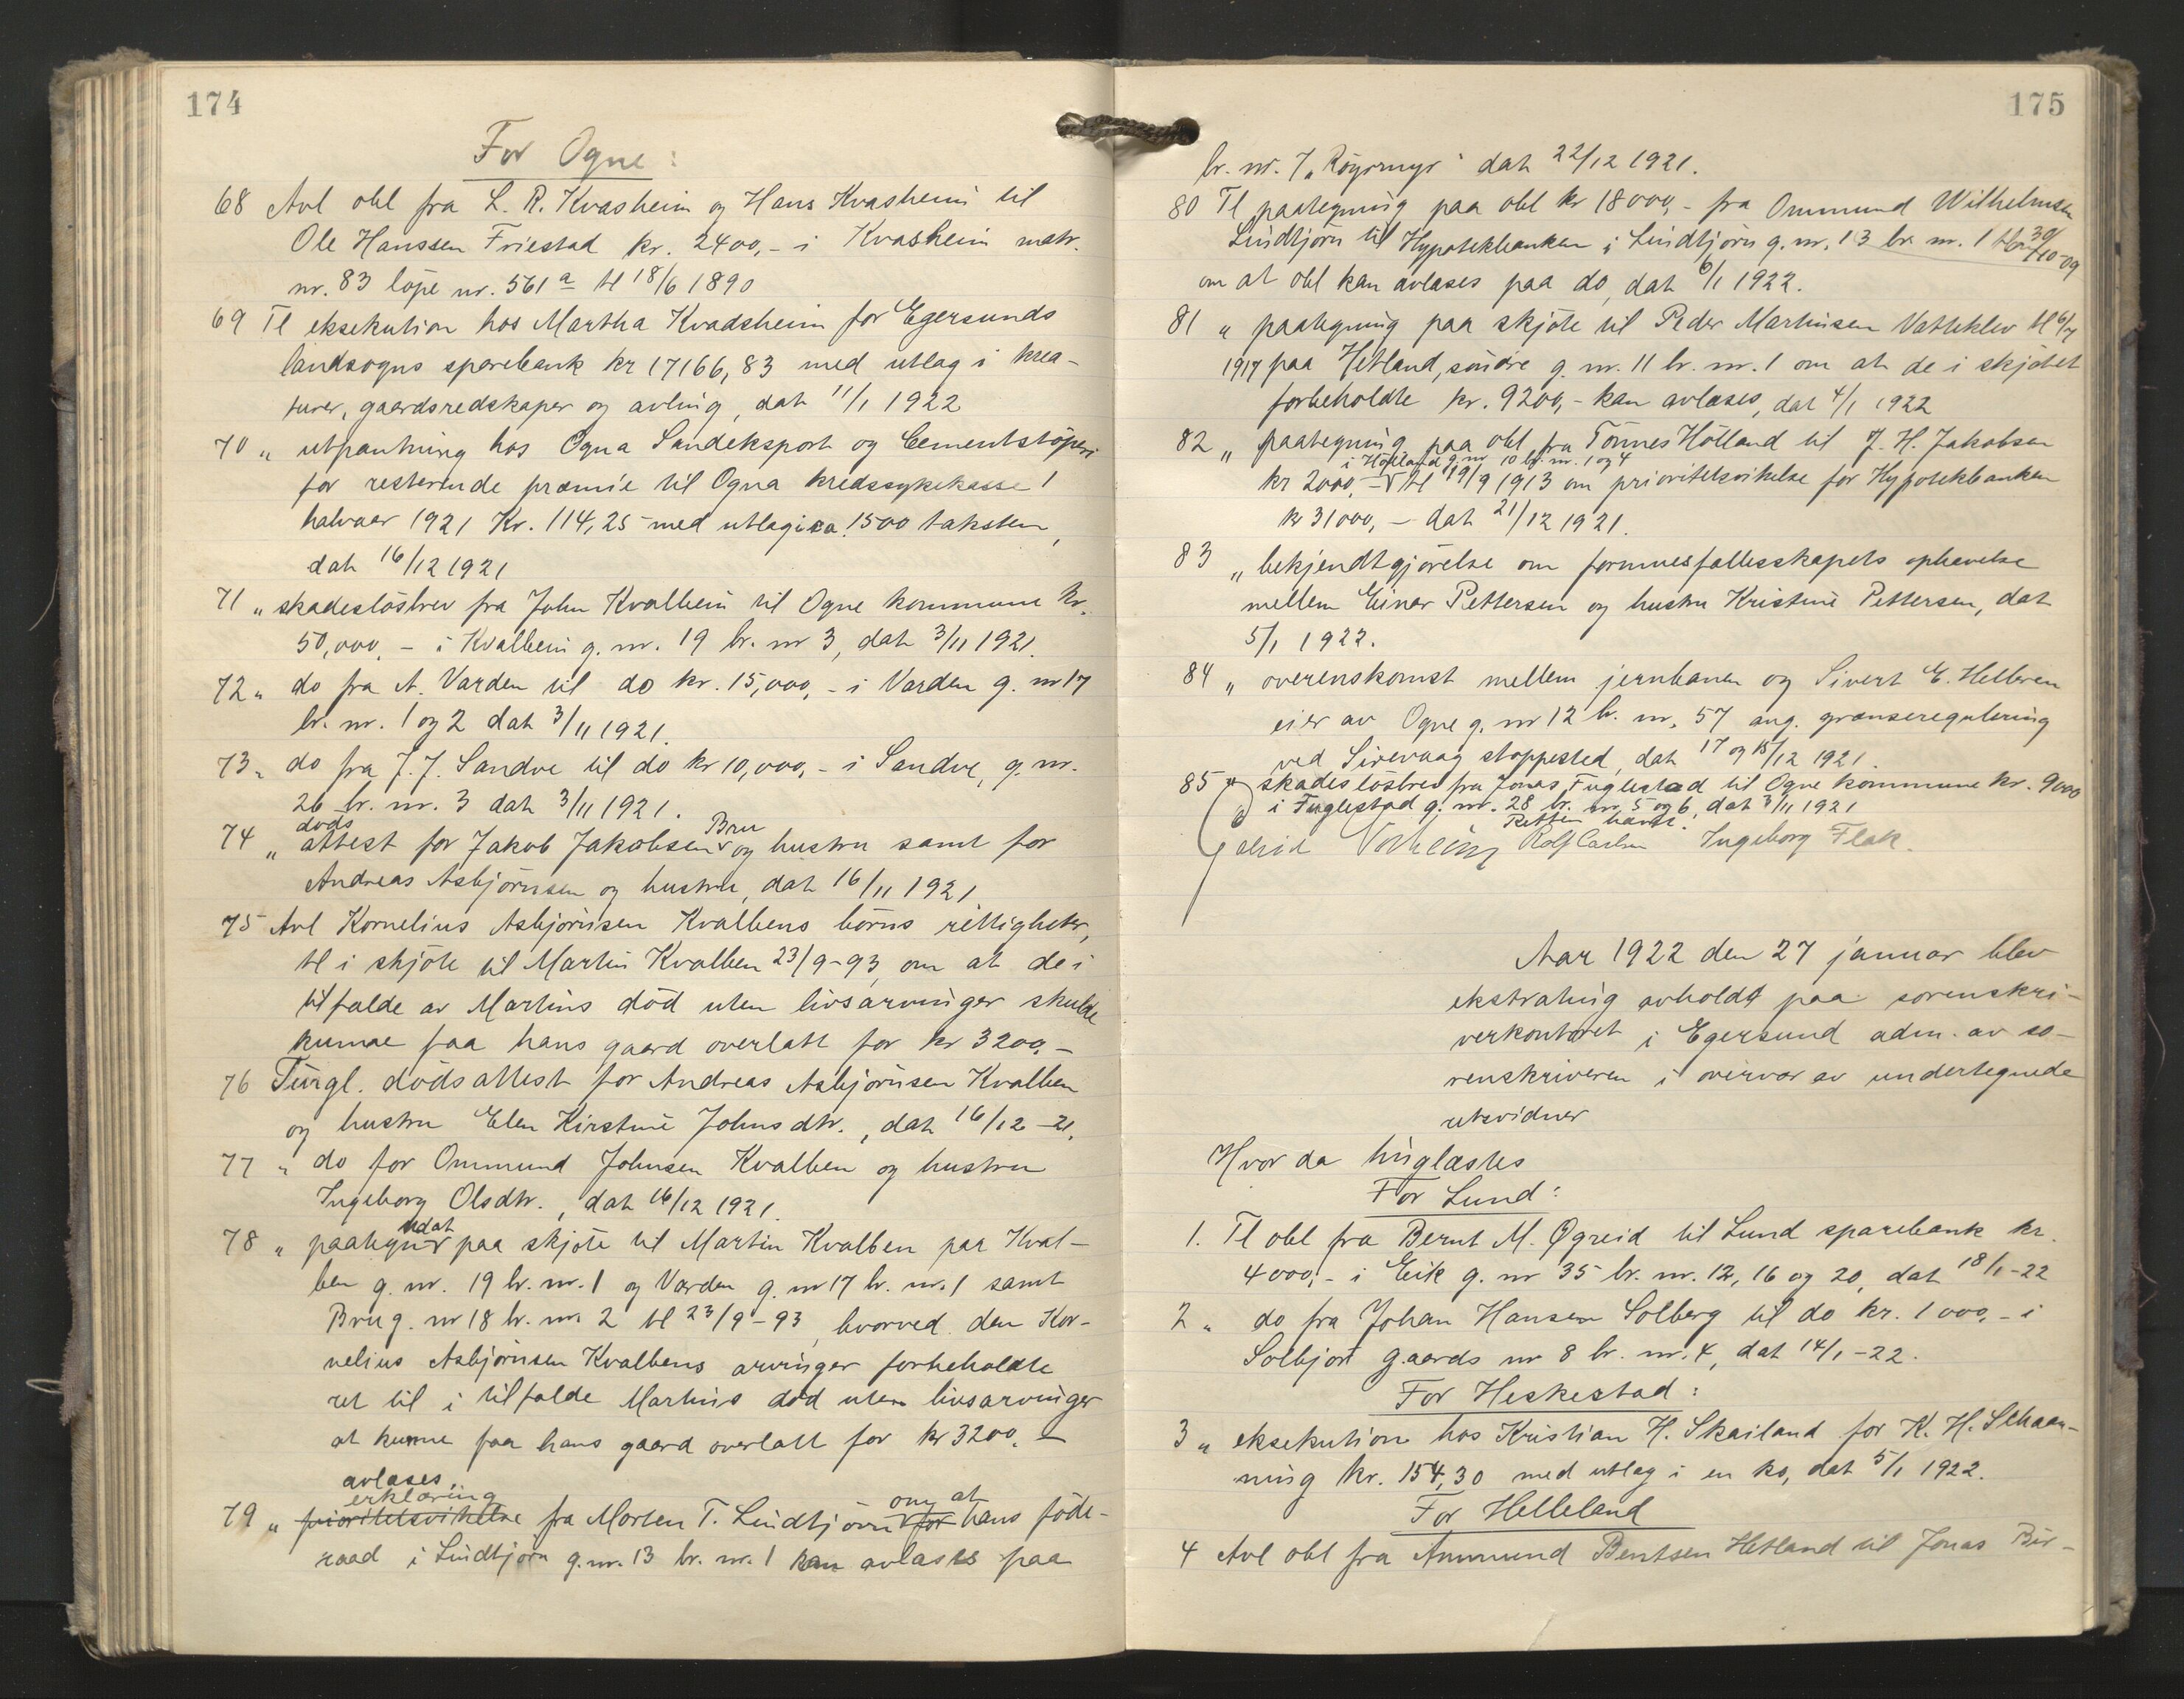 174
For Ogne:
68 Avl obl fra L. R. Kvasheim og Hans Kvasheim til
Ole Hanssen Friestad kr. 2400,- i Kvasheim matr.
nr. 83 löpe nr. 561 a tl 18/6 1890
69 Tl eksekution hos Martha Kvadsheim for Egersunds
landsogns sparebank kr 17166,83 med utlag i krea-
turer, gaardsredskaper og avling, dat 11/1 1922
70 " utpantning hos Ogna Sandeksport og Cementstöperi
for resterende præmie til Ogna kredssykekasse 1
halvaar 1921 Kr. 114,25 med utlag i ca. 1500 taksten,
dat 16/12 1921
71 " skadeslösbrev fra John Kvalbein til Ogne kommune kr.
50,000,- i Kvalbein g. nr. 19 br. nr 3, dat 3/11 1921.
72 " do fra A. Varden til do kr. 15,000,- i Varden g. nr 17
br. nr. 1 og 2 dat 3/11 1921.
73 " do fra J. J. Sandve til do kr 10,000,- i Sandve, g. nr.
26 br. nr. 3 dat 3/11 1921.
döds Bru
74 " attest for Jakob Jakobsen og hustru samt for
Andreas Asbjörnsen og hustru, dat 16/11 1921
75 Avl Kornelius Asbjörnsen Kvalbens börns rettigheter,
tl i skjöte til Martin Kvalben 23/9-93 om at de i
tilfælde av Martins död uten livsarvinger skulde
kunne faa hans gaard overlatt for kr 3200,-
76 Tingl. dödsattest for Andreas Asbjörnsen Kvalben
og hustru Elen Kirstine Johnsdtr., dat 16/12-21.
77 " do for Ommund Johnsen Kvalben og hustru
Ingeborg Olsdtr., dat 16/12 1921.
udat
78 " paategn paa skjöte til Martin Kvalben paa Kval-
ben g. nr. 19 br. nr. 1 og Varden g. nr 17 br. nr. 1 samt
Bru g. nr 18 br. nr 2 tl 23/9-93, hvorved den Kor-
nelius Asbjörnsen Kvalbens arvinger forbeholdte
ret til i tilfælde Martins död uten livsarvinger
at kunne faa hans gaard overlatt for kr 3200,-
avlæses.
erklæring om at
79 " prioritetsvikelse fra Morten T. Lindtjörn for hans föde-
raad i Lindtjörn g. nr. 13 br. nr. 1 kan avlæses paa
175
br. nr. 7 "Röysmyr" dat 22/12 1921.
80 Tl paategning paa obl kr 18000,- fra Ommund Wilhelmsen
Lindtjörn til Hypotekbanken i Lindtjörn g. nr. 13 br. nr. 1 30/10-09
om at obl kan avlæses paa do, dat 6/1 1922.
81 " paategning paa skjöte til Peder Martinsen Vatteklev tl 6/7
1917 paa Hetland, söndre g. nr. 11 br. nr. 1 om at de i skjötet
forbeholdte kr. 9200,- kan avlæses, dat 4/1 1922
82 " paategning paa obl fra Tönnes Hölland til J. H. Jakobsen
i Hölland g. nr 10 br. nr. 1 og 4
kr 2000,- tl 19/9 1913 om prioritetsvikelse for Hypotekbanken
kr 31000,- dat 21/12 1921.
83 " bekjendtgjörelse om formuesfællesskapets ophævelse
mellem Einar Pettersen og hustru Kristine Pettersen, dat
5/1 1922.
84 " overenskomst mellem jernbanen og Sivert E. Helleren
eier av Ogne g. nr 12 br. nr. 57 ang. grænseregulering
ved Sirevaag stoppested, dat 17 og 15/12 1921.
85 " skadeslösbrev fra Jonas Fuglestad til Ogne kommune kr. 9000
i Fuglestad g. nr. 28 br. nr. 5 og 6, dat 3/11 1921
Retten hævet.
Rolf Carlsen Ingeborg Flak.
Aar 1922 den 27 januar blev
ekstrating avholdt paa sorenskri-
verkontoret i Egersund adm. av so-
renskriveren i overvær av undertegnede
retsvidner
Hvor da tinglæstes
For Lund:
1. Tl obl fra Bernt M. Øgreid til Lund sparebank kr.
4000,- i Eik g. nr 35 br. nr. 12, 16 og 20, dat 18/1-22
2 " do fra Johan Hansen Solberg til do kr. 1000,- i
Solbjort gaards nr 8 br. nr. 4, dat 14/1-22.
For Heskestad:
3 " eksekution hos Kristian H. Skailand for K. H. Schaan-
ning kr. 154,30 med utlag i en ko, dat 5/1 1922.
For Helleland
4 Avl obl fra Ammund Bentsen Hetland til Jonas Bir-